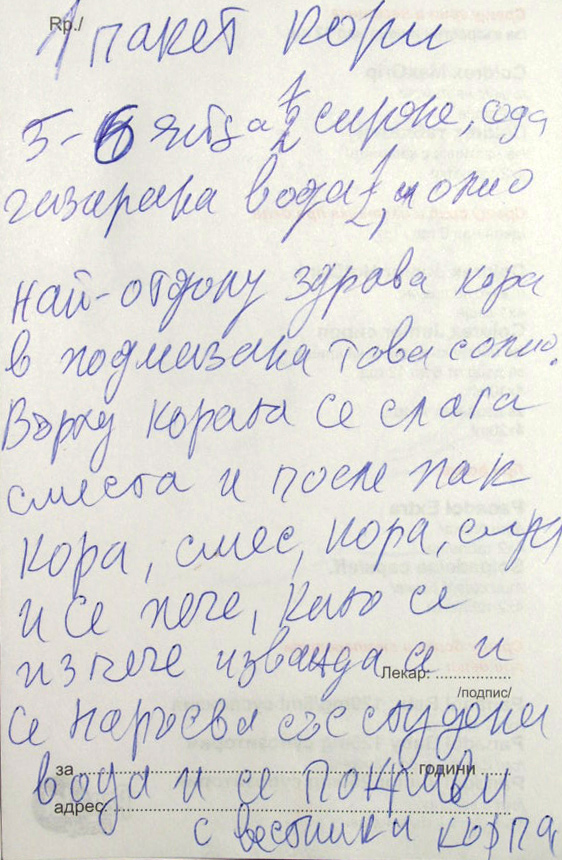 Rp./
1 пакет кори
5-6 яйца 1/2 сирене, сода
газирана вода 1/2, олио
най-отдолу здрава кора
в подмазана това с олио.
Върху кората се слага
сместа и после пак
кора, смес, кора,
и се пече, като се
изпече изважда се и
Лекар: ....................
/подпис/
се наръсва със студена
за .................... години ..........
вода и се покрива
адрес: ....................
с вестник и кърпа